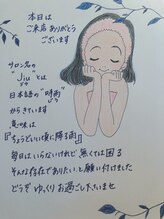 本日は
ご来店ありがとう
ございます
サロン名の
"Jiu"とは
日本語の"時雨"
からきています
意味は
『ちょうどいい頃に降る雨』
毎日はいらないけれど無くては困る
そんな存在でありたい、と願い付けました
どうぞゆっくりお過ごし下さいませ